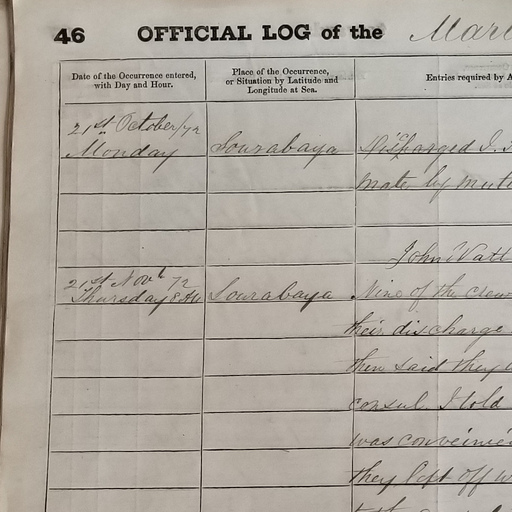 46 OFFICIAL LOG of the Mar
Date of the Occurrence entered, with Day and Hour.
Place of the Occurrence, or Situation by Latitude and Longitude at Sea.
Entries required by A
21st October/72
Monday Sourabaya Discharged J.
mate by mut
John Watt
21st Novb 72
Thursday 8 AM Sourabaya Nine of the crew
their discharge
then said they
consul I told
was convenie
they left off w